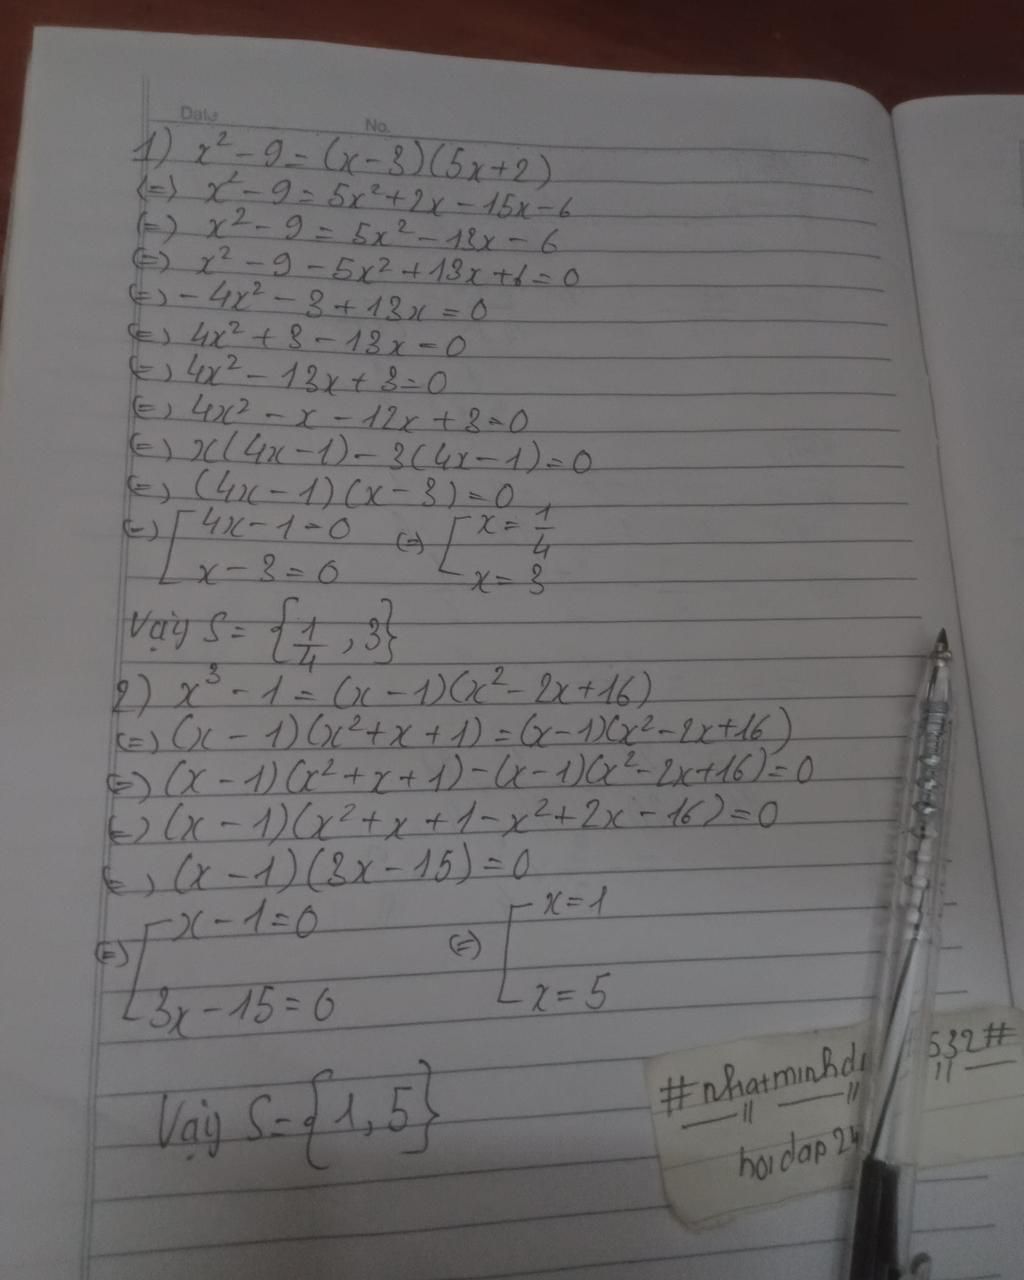 Date No.
1) x² - 9 = (x-3)(5x+2)
(=) x² - 9 = 5x² + 2x - 15x - 6
(=) x² - 9 = 5x² - 13x - 6
(=) x² - 9 - 5x² + 13x + 6 = 0
(=) - 4x² - 3 + 13x = 0
(=) 4x² + 3 - 13x = 0
(=) 4x² - 13x + 3 = 0
(=) 4x² - x - 12x + 3 = 0
(=) x(4x-1) - 3(4x-1) = 0
(=) (4x-1)(x-3) = 0
(=) [ 4x-1=0 (=) [ x = 1/4
x-3=0 x=3
Vậy S = {1/4, 3}
2) x³ - 1 = (x-1)(x²-2x+16)
(=) (x-1)(x²+x+1) = (x-1)(x²-2x+16)
(=) (x-1)(x²+x+1) - (x-1)(x²-2x+16) = 0
(=) (x-1)(x²+x+1-x²+2x-16) = 0
(=) (x-1)(3x-15) = 0
(=) [ x-1=0 (=) [ x=1
3x-15=0 x=5
Vậy S = {1, 5}
532#